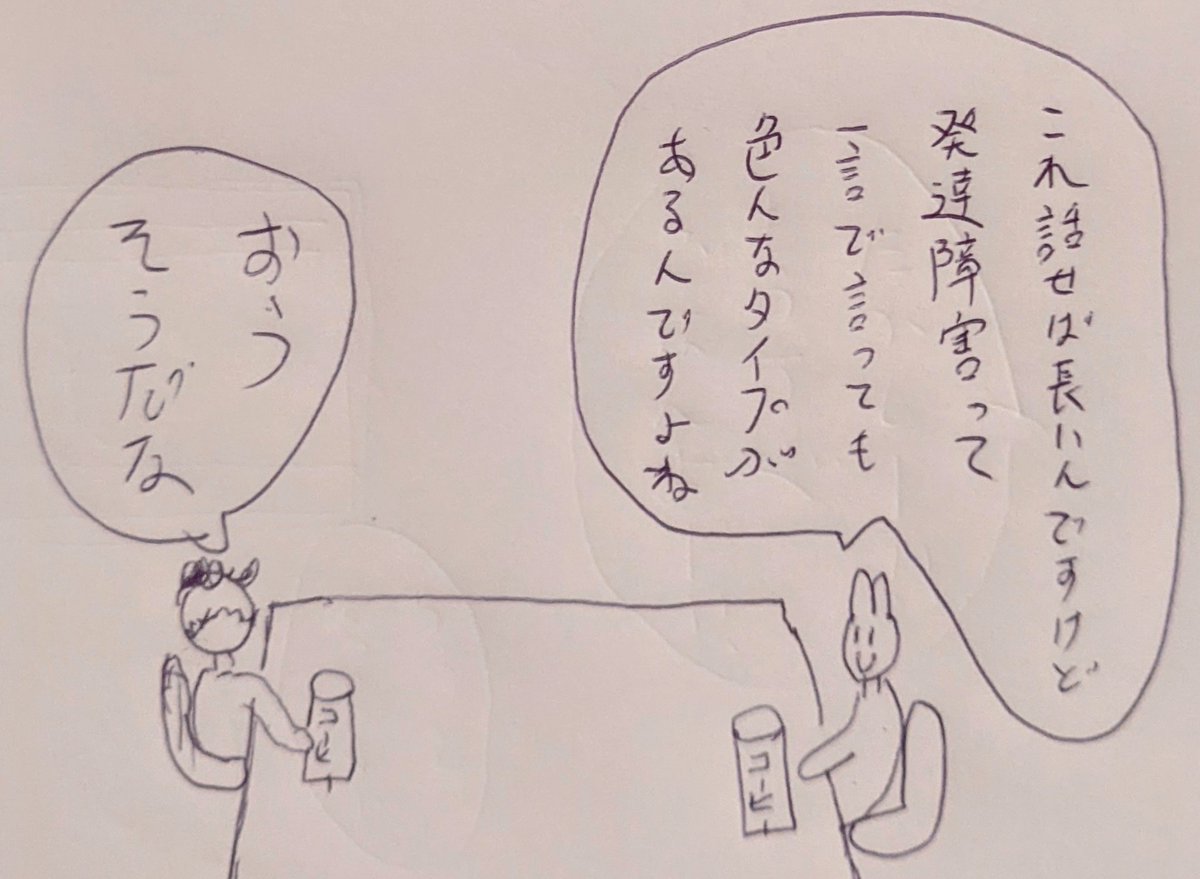 これ話せば長いんですけど
発達障害って
一言で言っても
色んなタイプが
あるんですよね
おぅ
そうだな
コーヒー
コーヒー